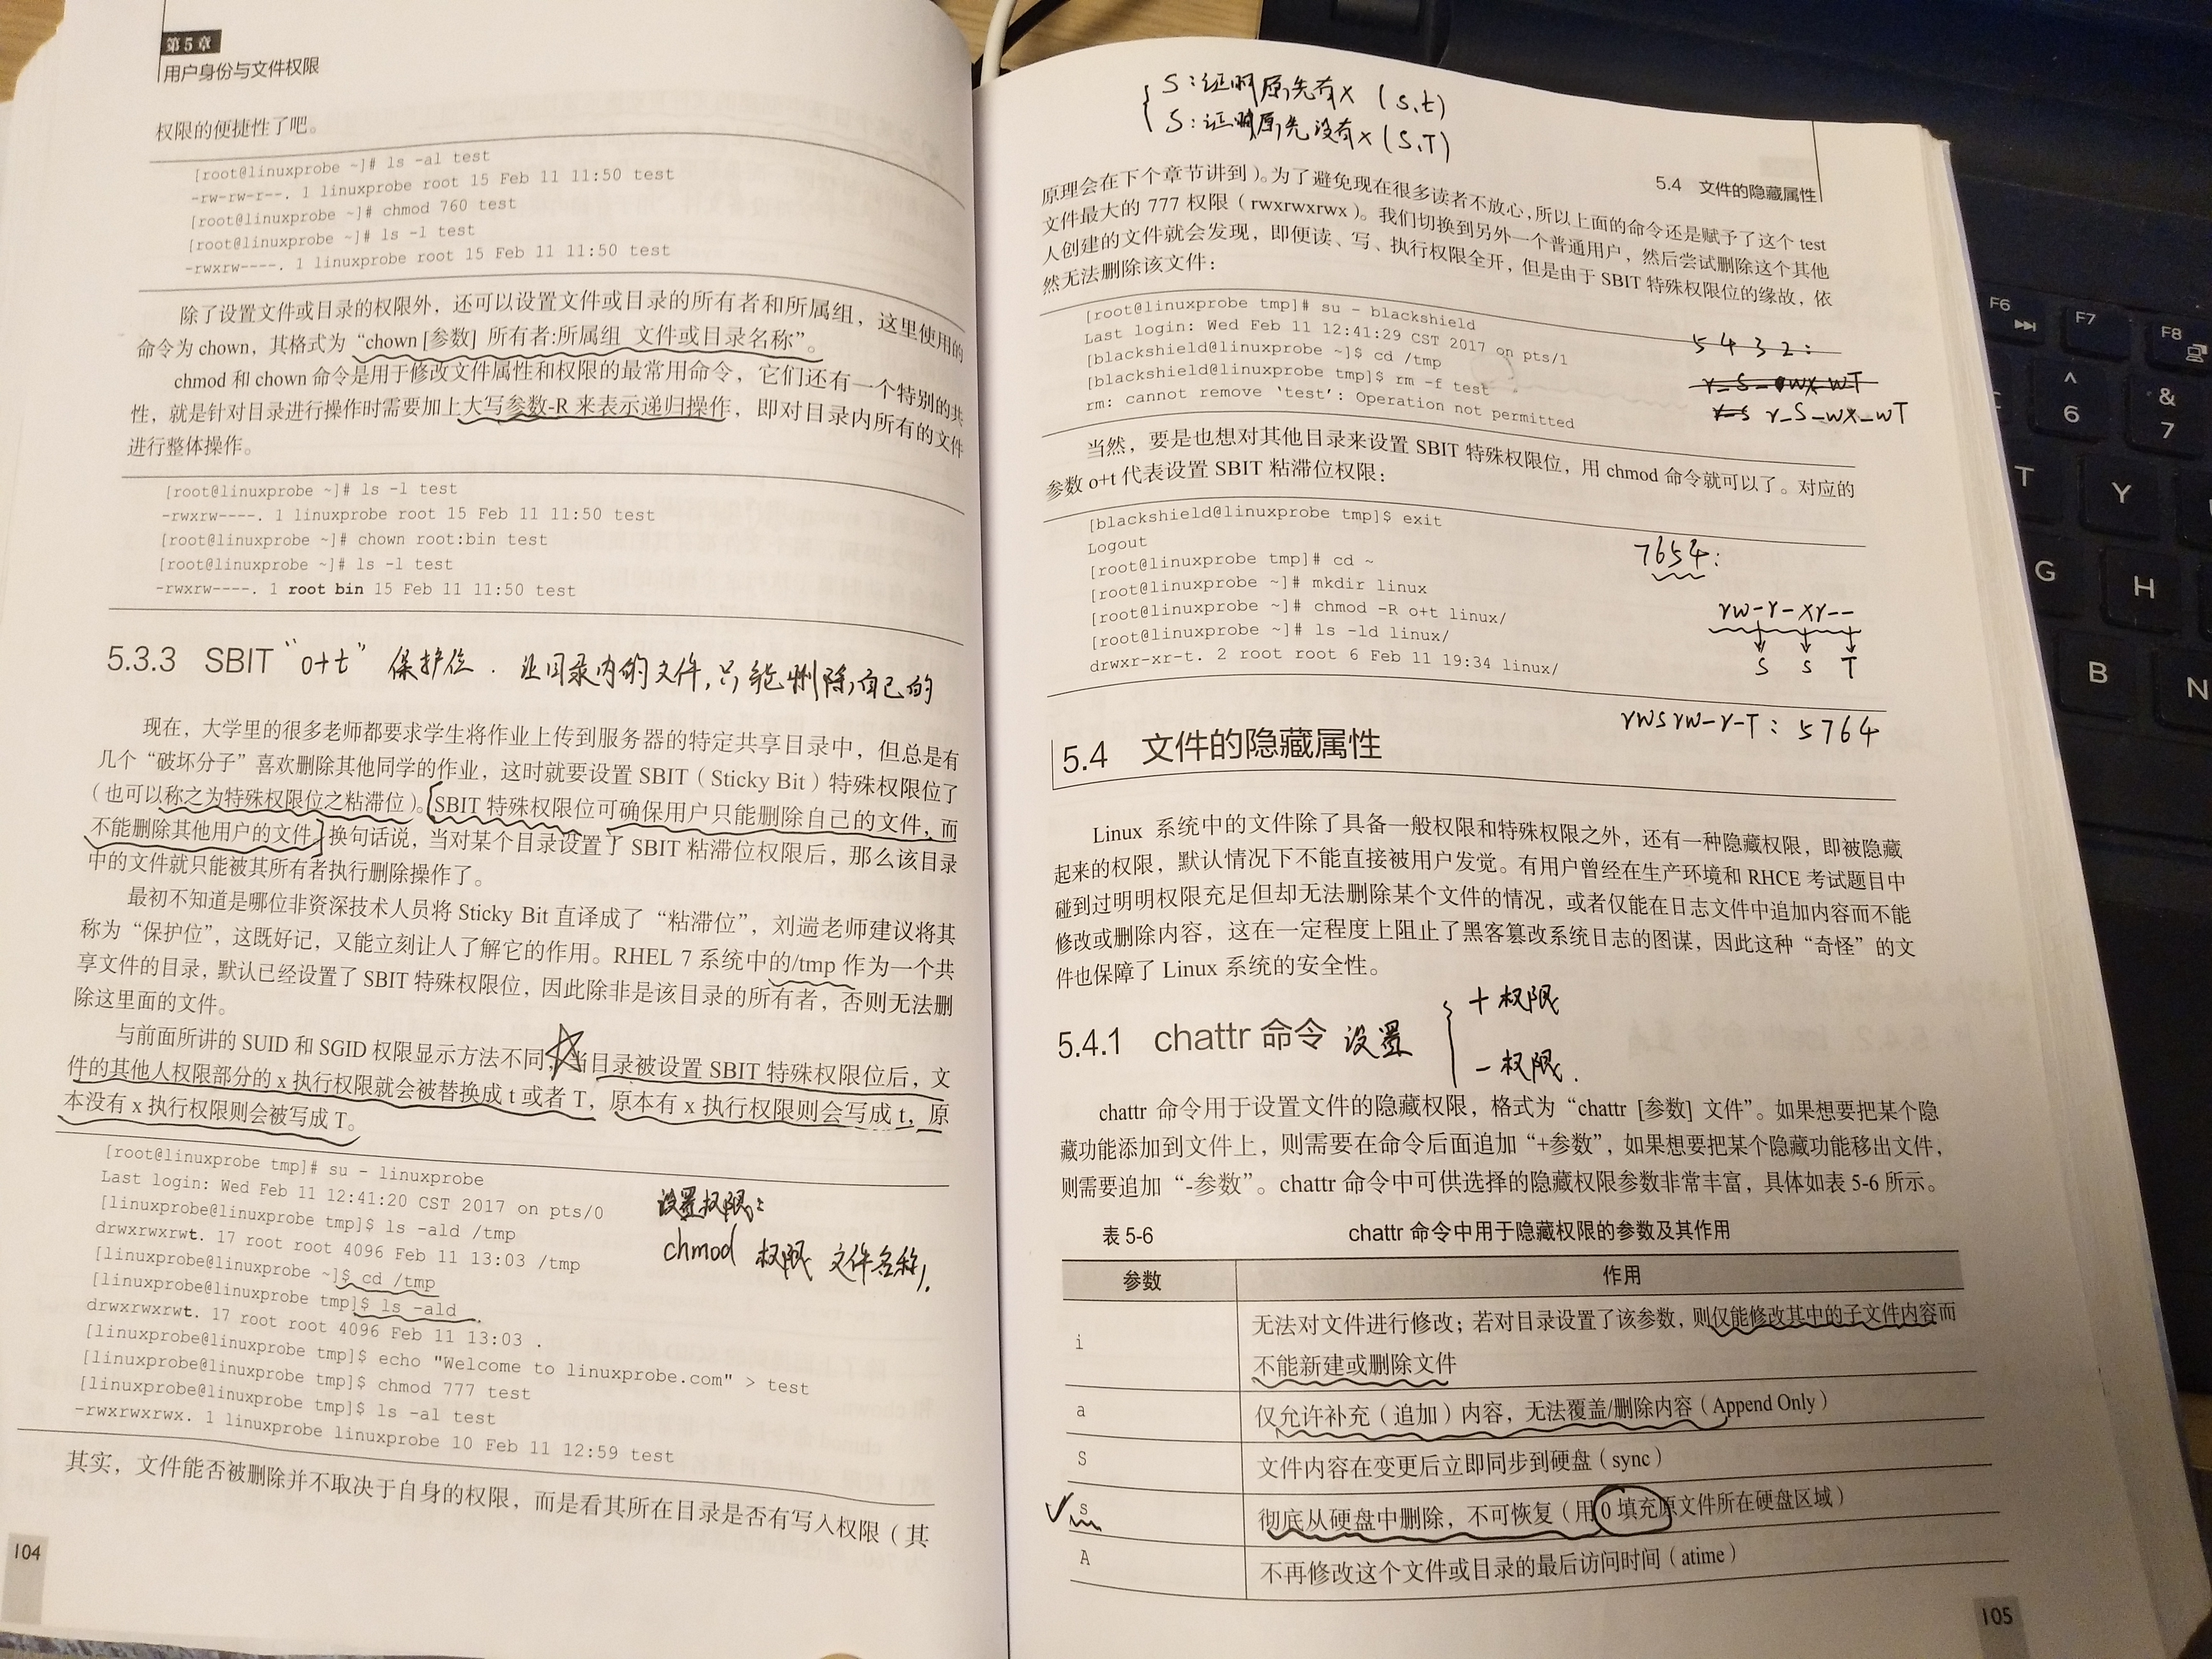 第5章
用户身份与文件权限
权限的便捷性了吧。
[root@linuxprobe ~]# ls -al test
-rw-rw-r--. 1 linuxprobe root 15 Feb 11 11:50 test
[root@linuxprobe ~]# chmod 760 test
[root@linuxprobe ~]# ls -l test
-rwxrw----. 1 linuxprobe root 15 Feb 11 11:50 test
除了设置文件或目录的权限外，还可以设置文件或目录的所有者和所属组，这里使用的
命令为 chown，其格式为“chown [参数] 所有者:所属组 文件或目录名称”。
chmod 和 chown 命令是用于修改文件属性和权限的最常用命令，它们还有一个特别的共
性，就是针对目录进行操作时需要加上大写参数-R 来表示递归操作，即对目录内所有的文件
进行整体操作。
[root@linuxprobe ~]# ls -l test
-rwxrw----. 1 linuxprobe root 15 Feb 11 11:50 test
[root@linuxprobe ~]# chown root:bin test
[root@linuxprobe ~]# ls -l test
-rwxrw----. 1 root bin 15 Feb 11 11:50 test
5.3.3 SBIT “o+t” 保护位．让目录内的文件，只能删除自己的
现在，大学里的很多老师都要求学生将作业上传到服务器的特定共享目录中，但总是有
几个“破坏分子”喜欢删除其他同学的作业，这时就要设置 SBIT（Sticky Bit）特殊权限位了
（也可以称之为特殊权限位之粘滞位）。SBIT 特殊权限位可确保用户只能删除自己的文件，而
不能删除其他用户的文件。换句话说，当对某个目录设置了 SBIT 粘滞位权限后，那么该目录
中的文件就只能被其所有者执行删除操作了。
最初不知道是哪位非资深技术人员将 Sticky Bit 直译成了“粘滞位”，刘遄老师建议将其
称为“保护位”，这既好记，又能立刻让人了解它的作用。RHEL 7 系统中的/tmp 作为一个共
享文件的目录，默认已经设置了 SBIT 特殊权限位，因此除非是该目录的所有者，否则无法删
除这里面的文件。
与前面所讲的 SUID 和 SGID 权限显示方法不同，当目录被设置 SBIT 特殊权限位后，文
件的其他人权限部分的 x 执行权限就会被替换成 t 或者 T，原本有 x 执行权限则会写成 t，原
本没有 x 执行权限则会被写成 T。
[root@linuxprobe tmp]# su - linuxprobe
Last login: Wed Feb 11 12:41:20 CST 2017 on pts/0
[linuxprobe@linuxprobe tmp]$ ls -ald /tmp
drwxrwxrwt. 17 root root 4096 Feb 11 13:03 /tmp
[linuxprobe@linuxprobe ~]$ cd /tmp
[linuxprobe@linuxprobe tmp]$ ls -ald
drwxrwxrwt. 17 root root 4096 Feb 11 13:03 .
[linuxprobe@linuxprobe tmp]$ echo "Welcome to linuxprobe.com" > test
[linuxprobe@linuxprobe tmp]$ chmod 777 test
[linuxprobe@linuxprobe tmp]$ ls -al test
-rwxrwxrwx. 1 linuxprobe linuxprobe 10 Feb 11 12:59 test
设置权限：
chmod 权限 文件名称，
其实，文件能否被删除并不取决于自身的权限，而是看其所在目录是否有写入权限（其
104
S：证明原先有x (s,t)
S：证明原先没有x (S,T)
5.4 文件的隐藏属性
原理会在下个章节讲到）。为了避免现在很多读者不放心，所以上面的命令还是赋予了这个 test
文件最大的 777 权限（rwxrwxrwx）。我们切换到另外一个普通用户，然后尝试删除这个其他
人创建的文件就会发现，即便读、写、执行权限全开，但是由于 SBIT 特殊权限位的缘故，依
然无法删除该文件：
[root@linuxprobe tmp]# su - blackshield
Last login: Wed Feb 11 12:41:29 CST 2017 on pts/1
[blackshield@linuxprobe ~]$ cd /tmp
[blackshield@linuxprobe tmp]$ rm -f test
rm: cannot remove ‘test’: Operation not permitted
5432:
r-S-wx-wT
当然，要是也想对其他目录来设置 SBIT 特殊权限位，用 chmod 命令就可以了。对应的
参数 o+t 代表设置 SBIT 粘滞位权限：
[blackshield@linuxprobe tmp]$ exit
Logout
[root@linuxprobe tmp]# cd ~
[root@linuxprobe ~]# mkdir linux
[root@linuxprobe ~]# chmod -R o+t linux/
[root@linuxprobe ~]# ls -ld linux/
drwxr-xr-t. 2 root root 6 Feb 11 19:34 linux/
7654:
rw-r-xr--
S s T
rwsrw-r-T: 5764
5.4 文件的隐藏属性
Linux 系统中的文件除了具备一般权限和特殊权限之外，还有一种隐藏权限，即被隐藏
起来的权限，默认情况下不能直接被用户发觉。有用户曾经在生产环境和 RHCE 考试题目中
碰到过明明权限充足但却无法删除某个文件的情况，或者仅能在日志文件中追加内容而不能
修改或删除内容，这在一定程度上阻止了黑客篡改系统日志的图谋，因此这种“奇怪”的文
件也保障了 Linux 系统的安全性。
5.4.1 chattr 命令 设置
+ 权限
- 权限．
chattr 命令用于设置文件的隐藏权限，格式为“chattr [参数] 文件”。如果想要把某个隐
藏功能添加到文件上，则需要在命令后面追加“+参数”，如果想要把某个隐藏功能移出文件，
则需要追加“-参数”。chattr 命令中可供选择的隐藏权限参数非常丰富，具体如表 5-6 所示。
表 5-6 chattr 命令中用于隐藏权限的参数及其作用
参数 作用
i 无法对文件进行修改；若对目录设置了该参数，则仅能修改其中的子文件内容而
不能新建或删除文件
a 仅允许补充（追加）内容，无法覆盖/删除内容（Append Only）
S 文件内容在变更后立即同步到硬盘（sync）
s 彻底从硬盘中删除，不可恢复（用 0 填充原文件所在硬盘区域）
A 不再修改这个文件或目录的最后访问时间（atime）
105
F6
F7
F8
^
6
&
7
T
Y
G
H
B
N